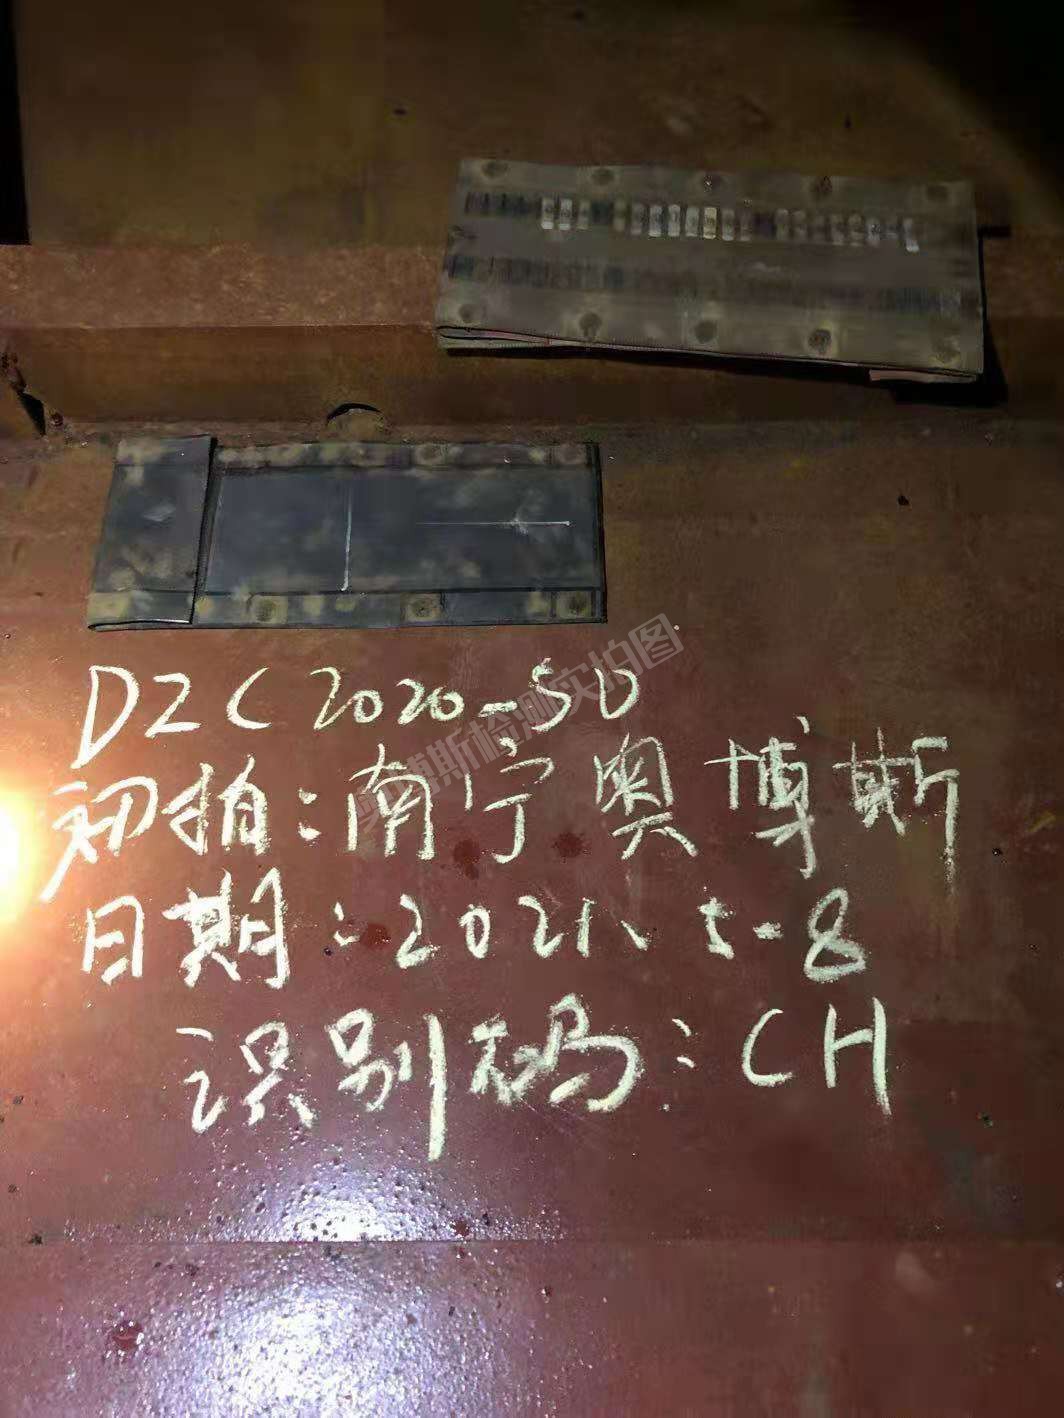 DZC2020-50
初拍:南宁奥博斯
日期:2021、5-8
识别码:CH
奥博斯检测实拍图